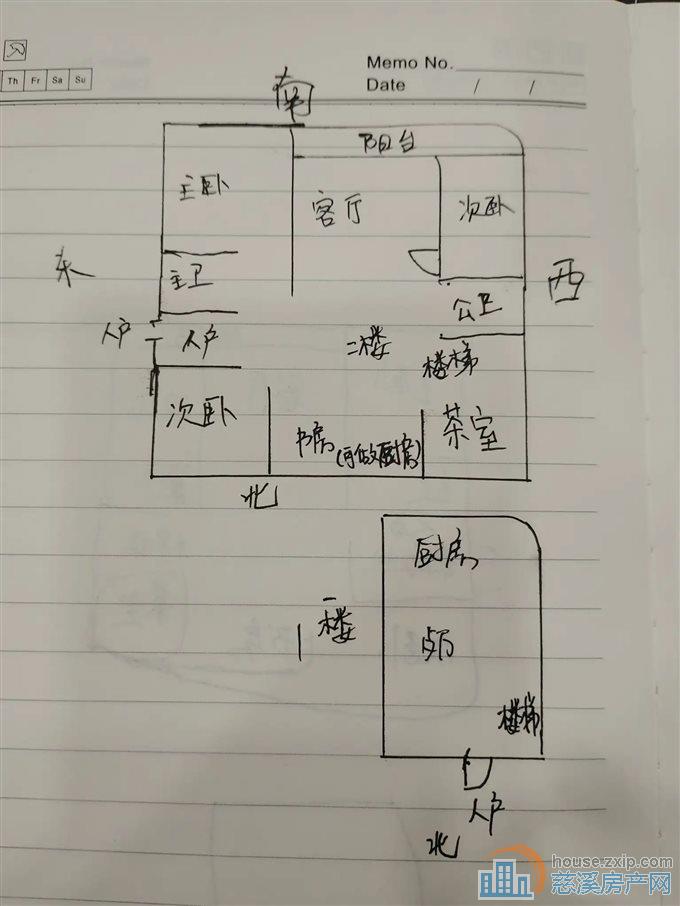 Memo No.
Th Fr Sa Su
Date / /
南
阳台
主卧
客厅
次卧
东
主卫
西
公卫
入户
入户
二楼
楼梯
次卧
书房
(可做厨房)
茶室
北
厨房
一楼
楼梯
入户
北
house.zxip.com
慈溪房产网